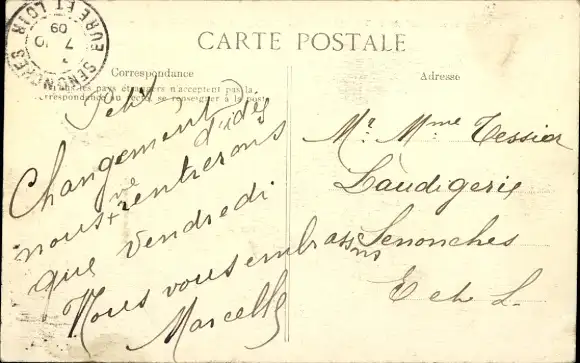 CARTE POSTALE
Correspondance
Tous les pays étrangers n'acceptent pas la
correspondance au recto, se renseigner à la poste
Petit
Changement
d'idées
nous ne rentrerons
que vendredi
Nous vous embrassons
Marcelle
Adresse
Mr. Mme Tessier
Laudigerie
Senonches
E et L.
SENONCHES
EURE ET LOIR
7
09